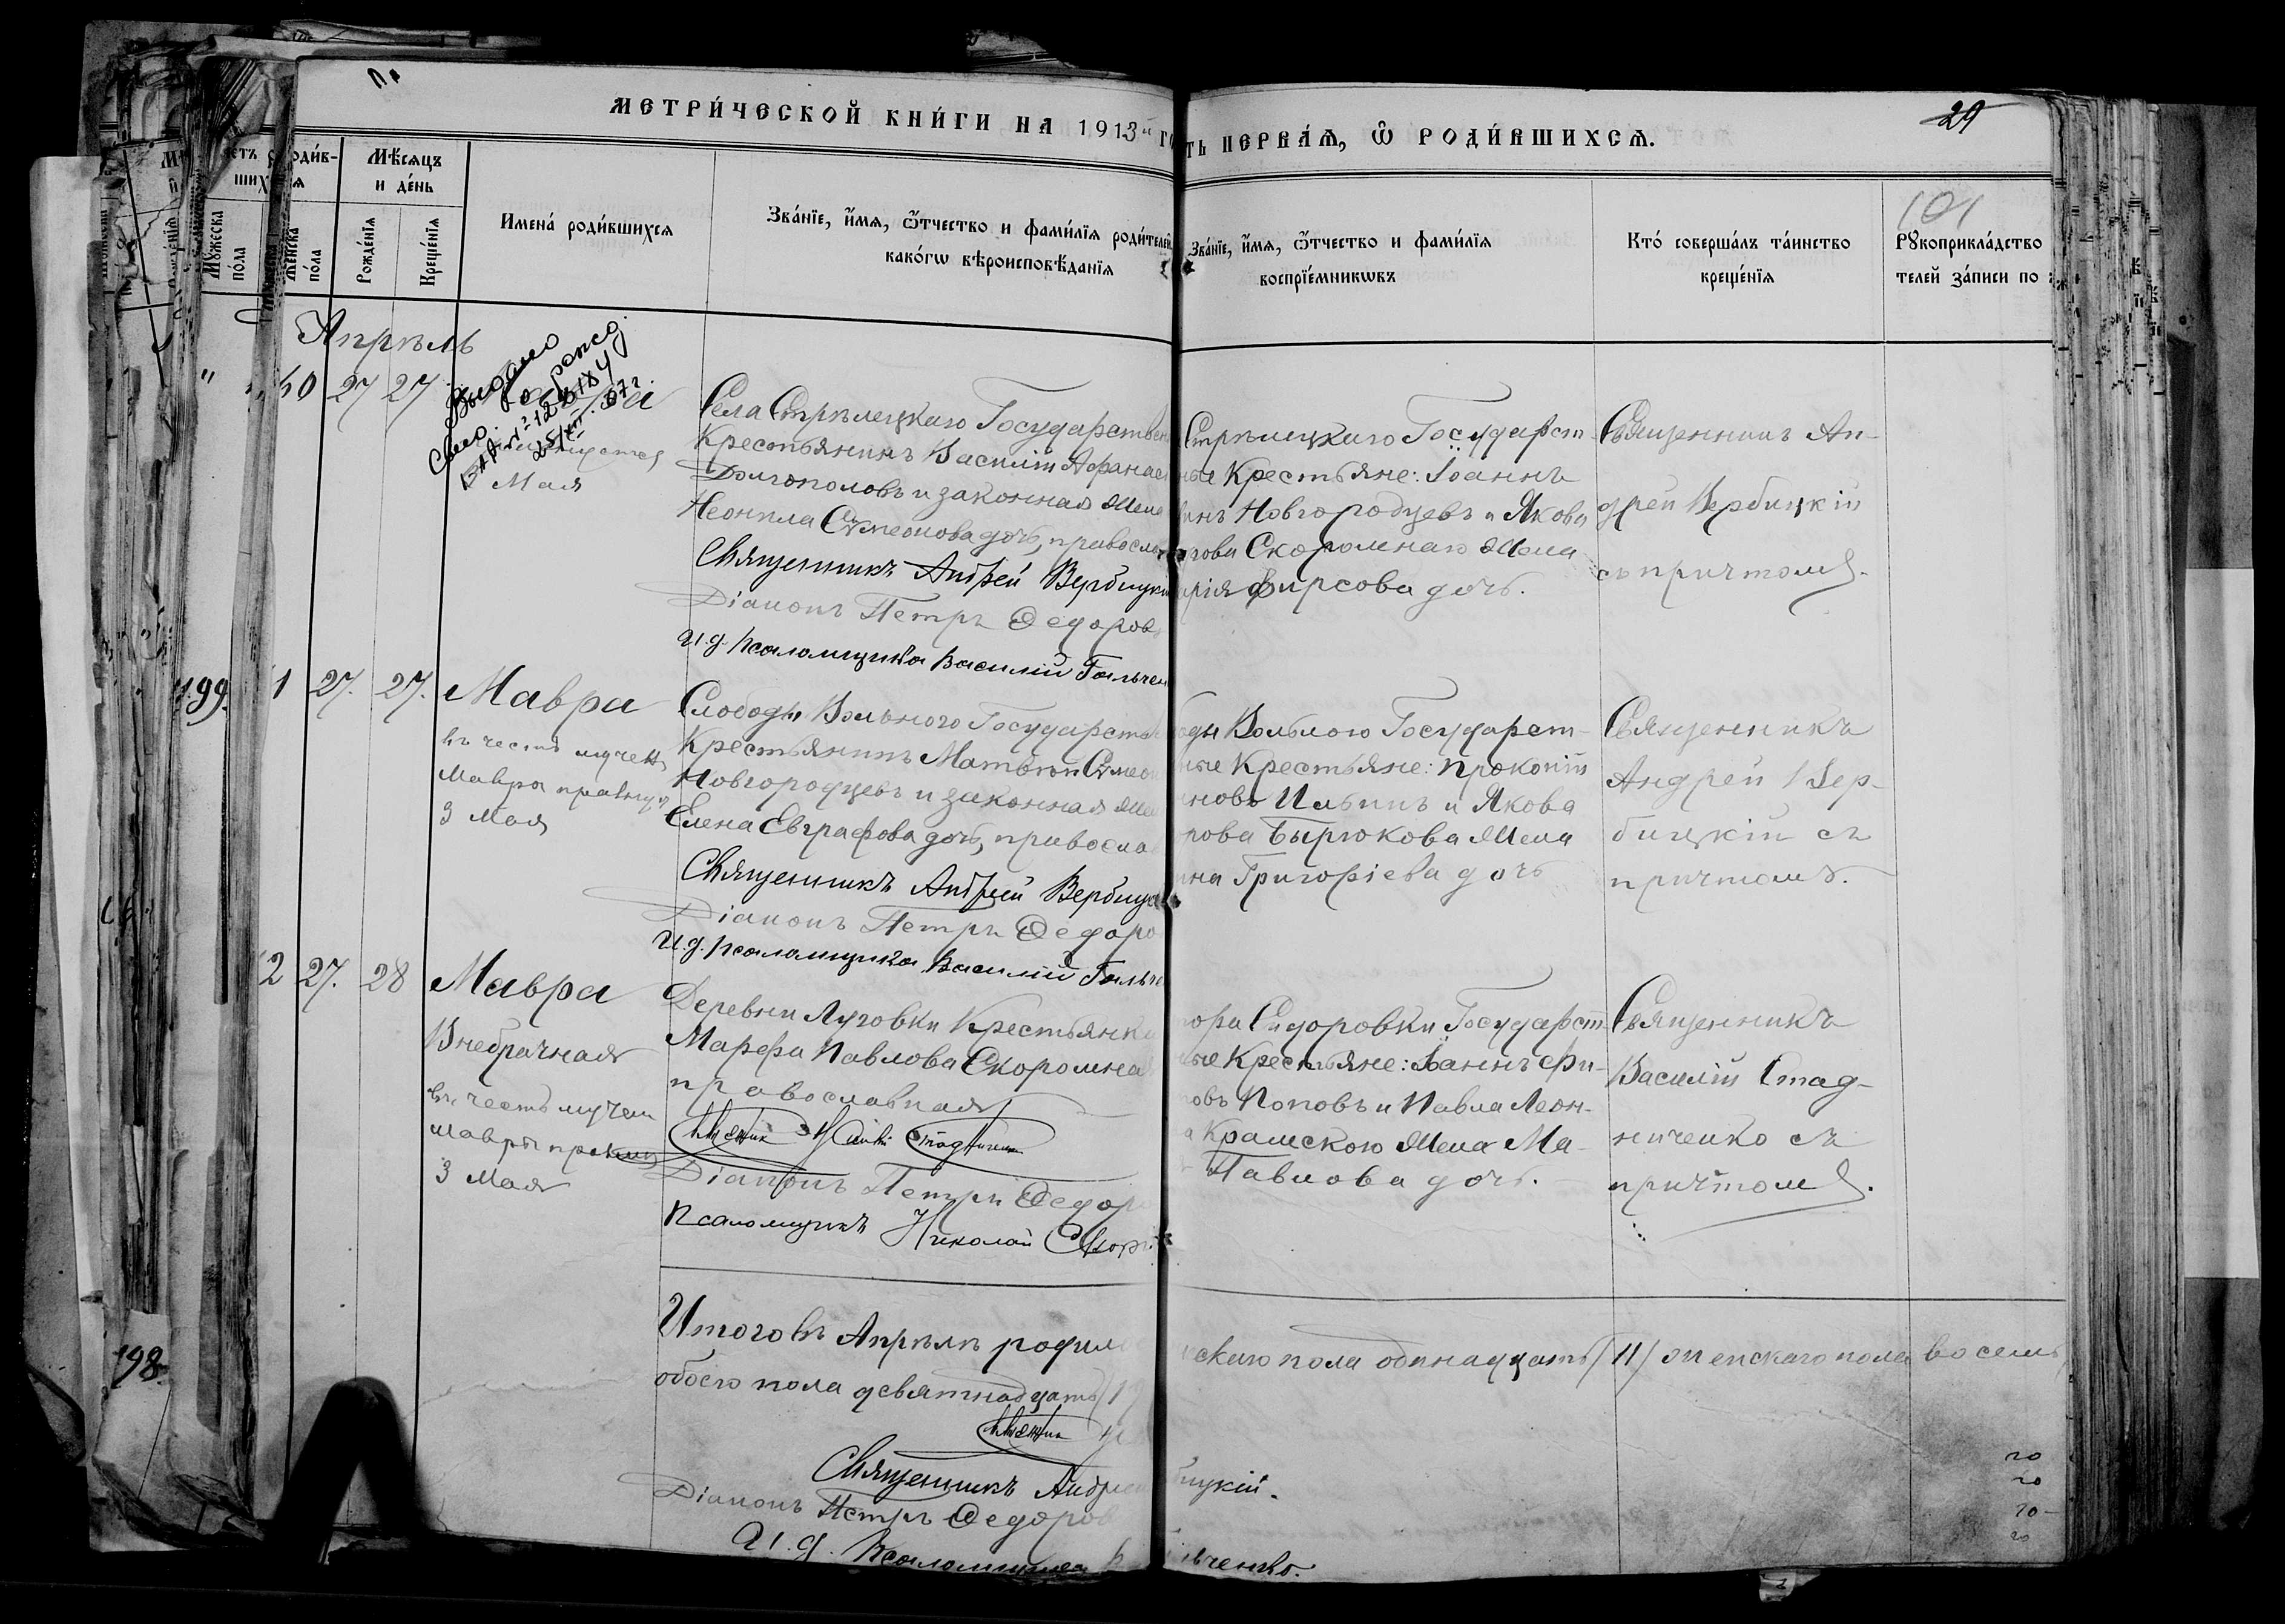 МЕТРИ́ЧЕСКОЙ КНИ́ГИ НА 1913 ГО
ТЬ ПЕРВА́Ѧ, Ѿ РОДИ́ВШИХСѦ.
29
101
Мѣ́сѧцъ
и де́нь
Рожде́нїя
Креще́нїя
Же́нска
по́ла
Имена́ роди́вшихсѧ
Зва́нїе, и҆́мѧ, ѻ҆́тчество и фами́лїя роди́телей
како́гѡ вѣроисповѣ́данїя
Зва́нїе, и҆́мѧ, ѻ҆́тчество и фами́лїя
воспрїе́мникѡвъ
Кто̀ соверша́лъ та́инство
креще́нїя
Рꙋкоприкла́дство
телей за́писи по
Апрѣль
27 27
3 Мая
Села Стрѣлецкаго Государствен
Крестьянинъ Василій Афанась
Долгополовъ и законная жена
Неонила Сѵмеонова дочь, правосла
Священникъ Андрей Вербицкі
Діаконъ Петръ Ѳедоров
И.д. псаломщика Василій Гальчен
Стрѣлецкаго Государст-
ные Крестьяне: Іоаннъ
инъ Новгородцевъ и Якова
Скоромнаго жена
арія Фирсова дочь.
Священникъ Ан-
дрей Вербицкій
съ причтомъ.
199
1 27. 27. Мавра
въ честь мучен
Мавры празну
3 Мая
Слободы Вольного Государств
Крестьянинъ Матвѣй Сѵмеон
Новгородцевъ и законная жен
Елена Евграфова дочь, правосла
Священникъ Андрей Вербицк
Діаконъ Петръ Ѳедоро
И.д. псаломщика Василій Гальче
оды Вольного Государст-
ные Крестьяне: Прокопій
новъ Ильинъ и Якова
рова Бырюкова жена
ина Григоріева дочь
Священникъ
Андрей Вер-
бицкій съ
причтомъ.
2 27. 28 Мавра
Внебрачная
въ честь мучен
Мавры празну
3 Мая
Деревни Луговки Крестьянка
Марѳа Павлова Скоромная
православная
Діаконъ Петръ Ѳедор
Псаломщикъ Николай
тора Сидоровки Государст-
ные Крестьяне: Іоаннъ Фи-
повъ Поповъ и Павла Леон-
а Крамскою жена Ма-
Павлова дочь.
Священникъ
Василій Стад-
ниченко съ
причтомъ.
Итого въ Апрѣлѣ родил
обоего пола девятнадцать (19
скаго пола одинадцать (11) женскаго пола восемь
Священникъ Андрей
бицкій.
Діаконъ Петръ Ѳедоров
И.д. Псаломщика
льченко.
198